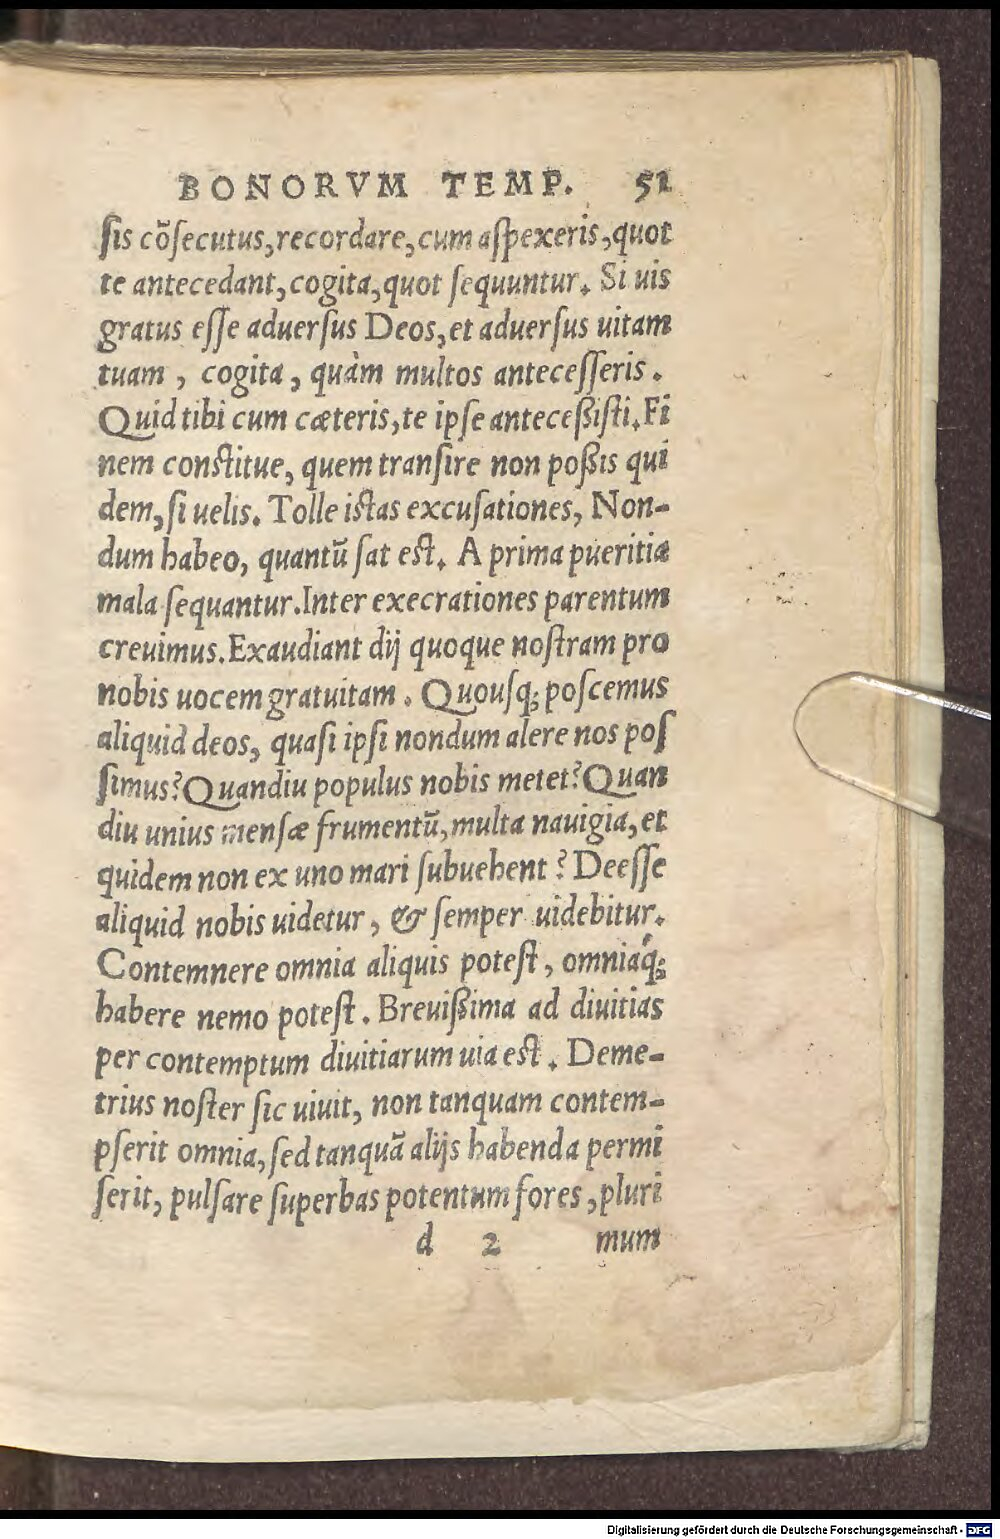 BONORVM TEMP. 51
sis cõsecutus, recordare, cum aspexeris, quot
te antecedant, cogita, quot sequuntur. Si uis
gratus esse aduersus Deos, et aduersus uitam
tuam, cogita, quàm multos antecesseris.
Quid tibi cum cæteris, te ipse anteceßisti. Fi
nem constitue, quem transire non poßis qui
dem, si uelis. Tolle istas excusationes, Non-
dum habeo, quantũ sat est. A prima pueritia
mala sequantur. Inter execrationes parentum
creuimus. Exaudiant dij quoque nostram pro
nobis uocem gratuitam. Quousq; poscemus
aliquid deos, quasi ipsi nondum alere nos pos
simus? Quandiu populus nobis metet? Quan
diu unius mensæ frumentũ, multa nauigia, et
quidem non ex uno mari subuehent? Deesse
aliquid nobis uidetur, & semper uidebitur.
Contemnere omnia aliquis potest, omniáq;
habere nemo potest. Breuißima ad diuitias
per contemptum diuitiarum uia est. Deme-
trius noster sic uiuit, non tanquam contem-
pserit omnia, sed tanquã alijs habenda permi
serit, pulsare superbas potentum fores, pluri
d 2 mum
Digitalisierung gefördert durch die Deutsche Forschungsgemeinschaft - DFG